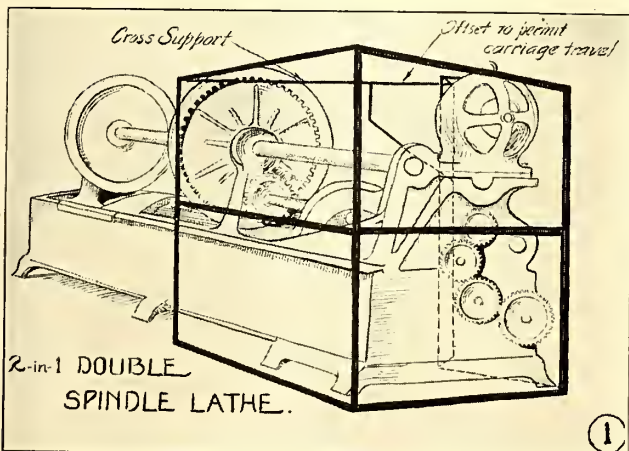 Cross Support
Offset to permit
carriage travel
2-in-1 DOUBLE
SPINDLE LATHE.
1